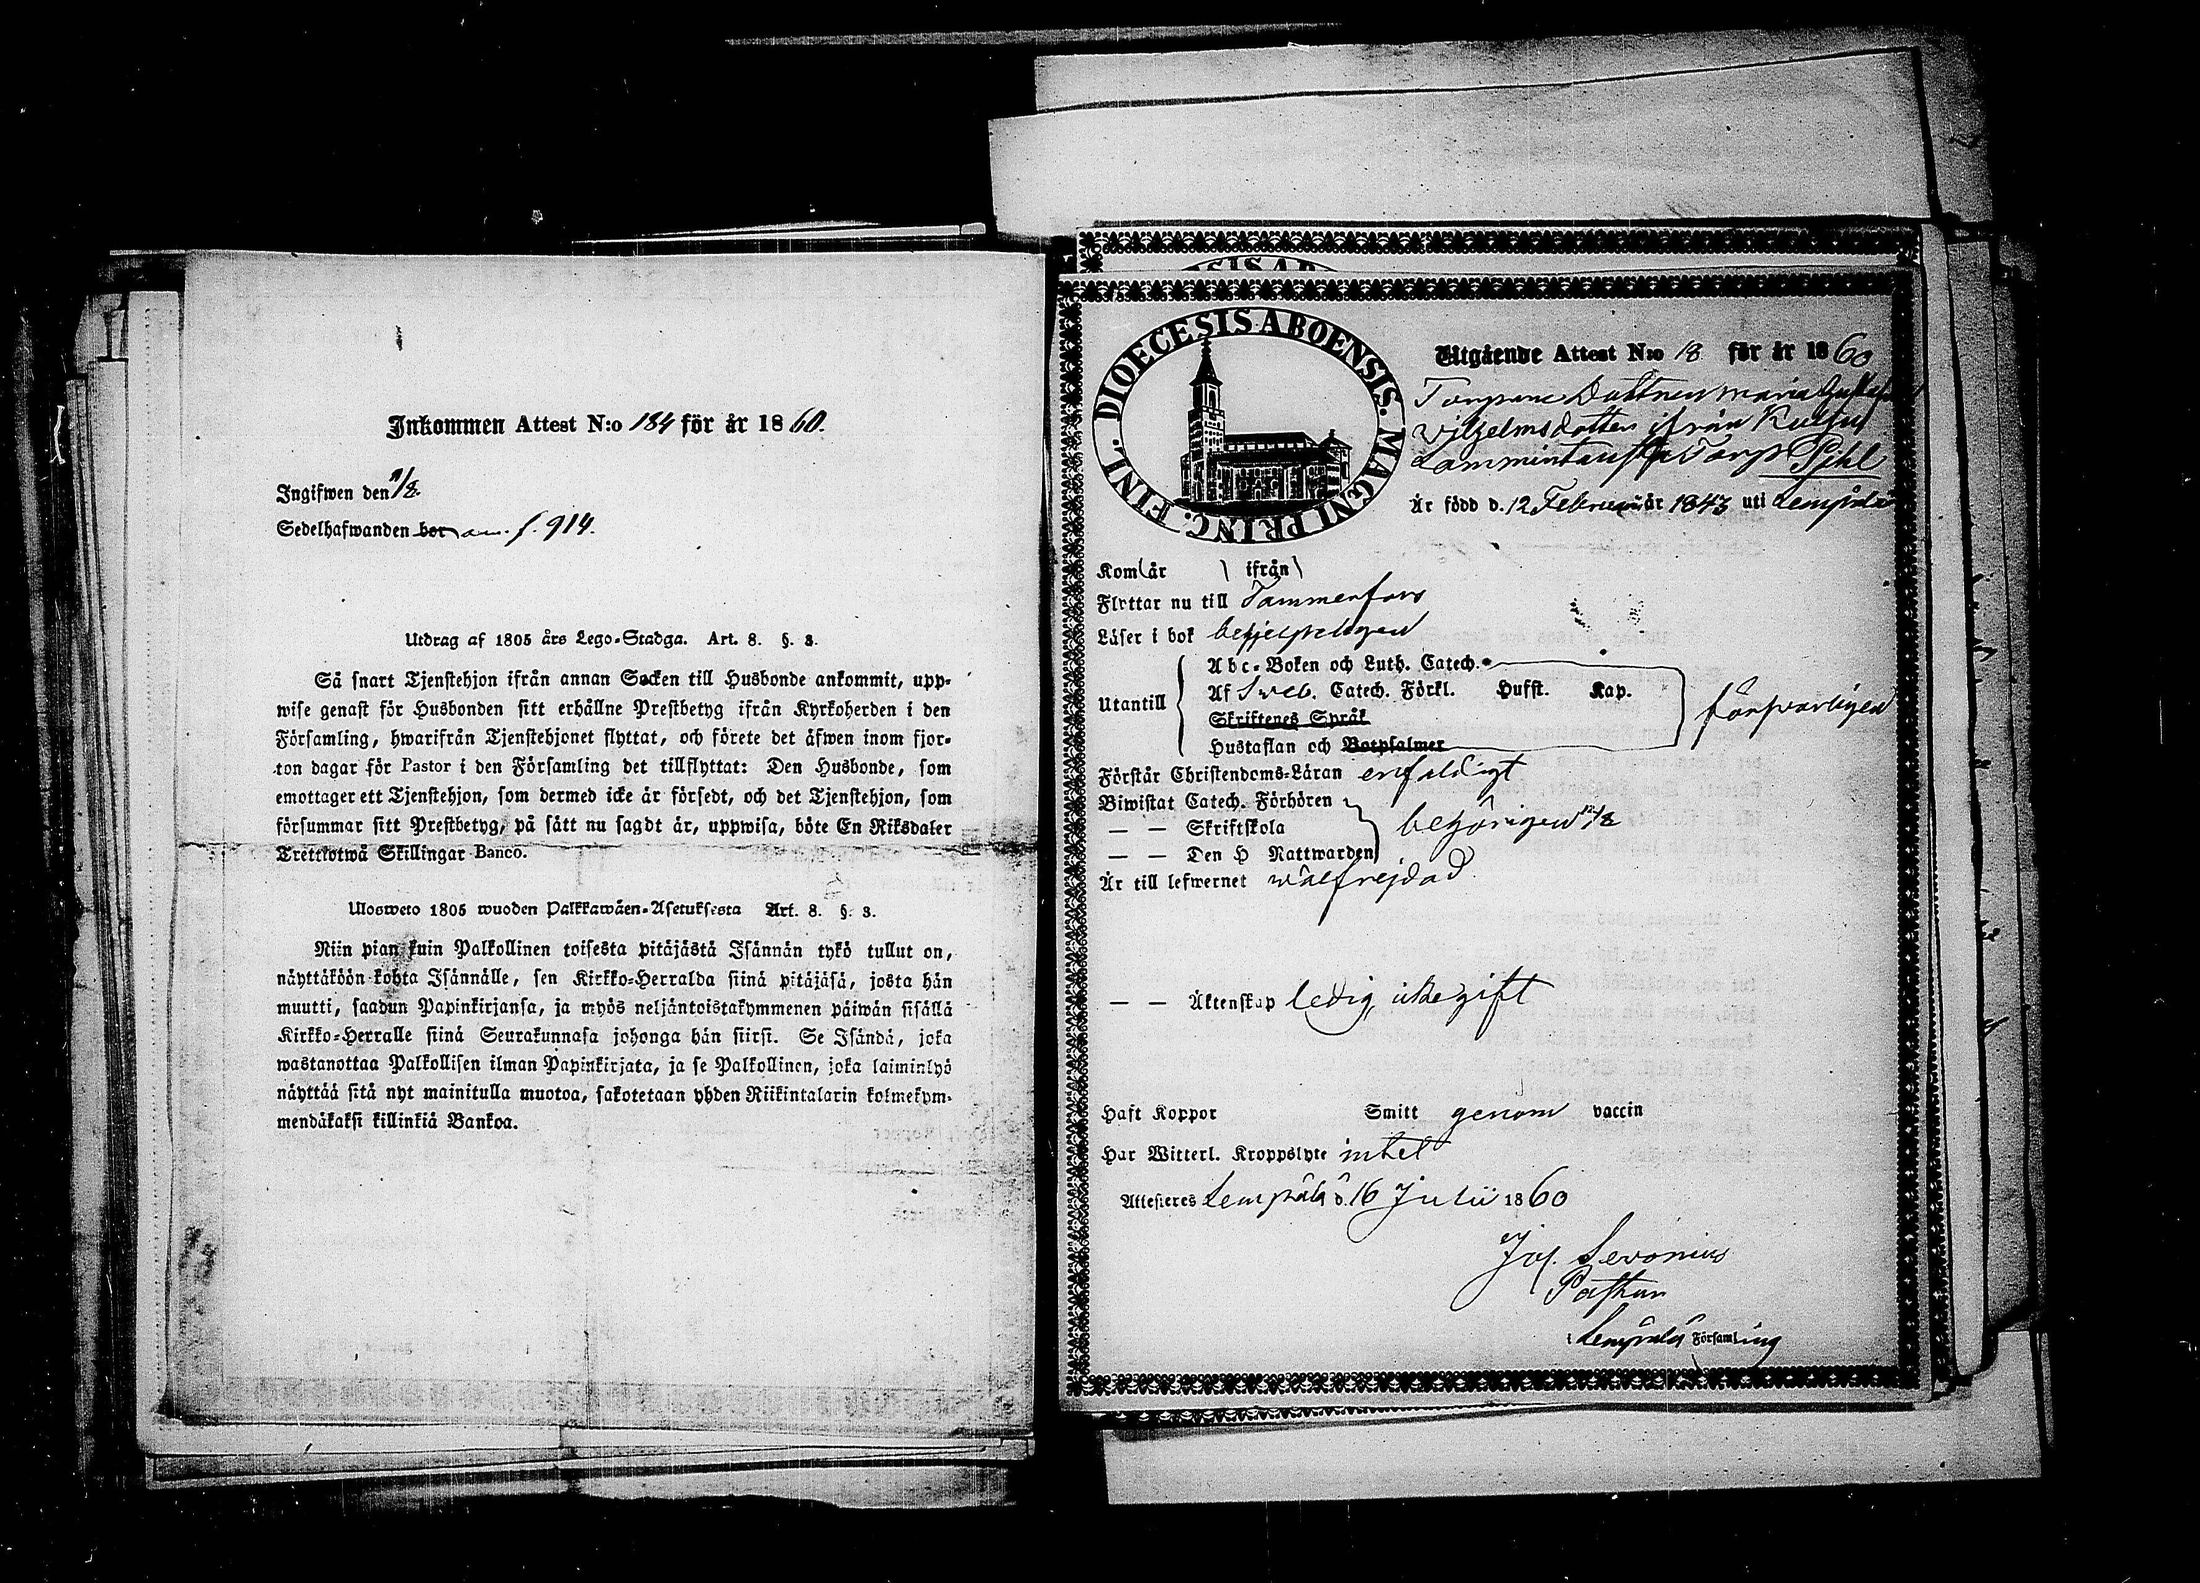 Inkommen Attest N:o 184 för år 1860.
Ingifwen den /8.
Sedelhafwanden bor f. 914.
Utdrag af 1805 års Lego-Stadga. Art. 8. §. 3.
Så snart Tjenstehjon ifrån annan Socken till Husbonde ankommit, upp-
wise genast för Husbonden sitt erhållne Prestbetyg ifrån Kyrkoherden i den
Församling, hwarifrån Tjenstehjonet flyttat, och förete det äfwen inom fjor-
ton dagar för Pastor i den Församling det tillflyttat: Den Husbonde, som
emottager ett Tjenstehjon, som dermed icke är försedt, och det Tjenstehjon, som
försummar sitt Prestbetyg, på sätt nu sagdt är, uppwisa, böte En Riksdaler
Trettiotwå Skillingar Banco.
Ulosweto 1805 wuoden Palkkawäen-Asetuksesta Art. 8. §. 3.
Niin pian kuin Palkollinen toisesta pitäjästä Isännän tykö tullut on,
näyttäköön kohta Isännälle, sen Kirkko-Herralda siinä pitäjäsä, josta hän
muutti, saadun Papinkirjansa, ja myös neljäntoistakymmenen päiwän sisällä
Kirkko-Herralle siinä Seurakunnasa johonga hän siirsi. Se Isändä, joka
wastanottaa Palkollisen ilman Papinkirjata, ja se Palkollinen, joka laiminlyö
näyttää sitä nyt mainitulla muotoa, sakotetaan yhden Riikintalarin kolmekym-
mendäkaksi killinkiä Bankoa.
DIOECESIS ABOENSIS. MAGNI PRINC. FINL.
Utgående Attest N:o 18 för år 1860
Torpare Dottren Maria Gustafva
Vilhelmsdotter ifrån Kulju
Lammintausta Torp Pihl
Är född d. 12 Februari år 1843 uti Lempälä
Kom år ifrån
Flyttar nu till Tammerfors
Läser i bok behjelpeligen
Utantill
Abc-Boken och Luth. Catech.
Af Sveb. Catech. Förkl. Hufst. Kap.
Skriftenes Språk
Hustaflan och Botpsalmer
försvarligen
Förstår Christendoms-Läran enfaldigt
Biwistat Catech. Förhören
— — Skriftskola
— — Den H Nattwarden
behörigen
Är till lefwernet wälfrejdad
— — Äktenskap ledig, icke gift
Haft Koppor Smitt genom vaccin
Har Witterl. Kroppslyte intet
Attesteres Lempälä d. 16 Julii 1860
Jos. Sevonius
Pastor
i Lempälä Församling